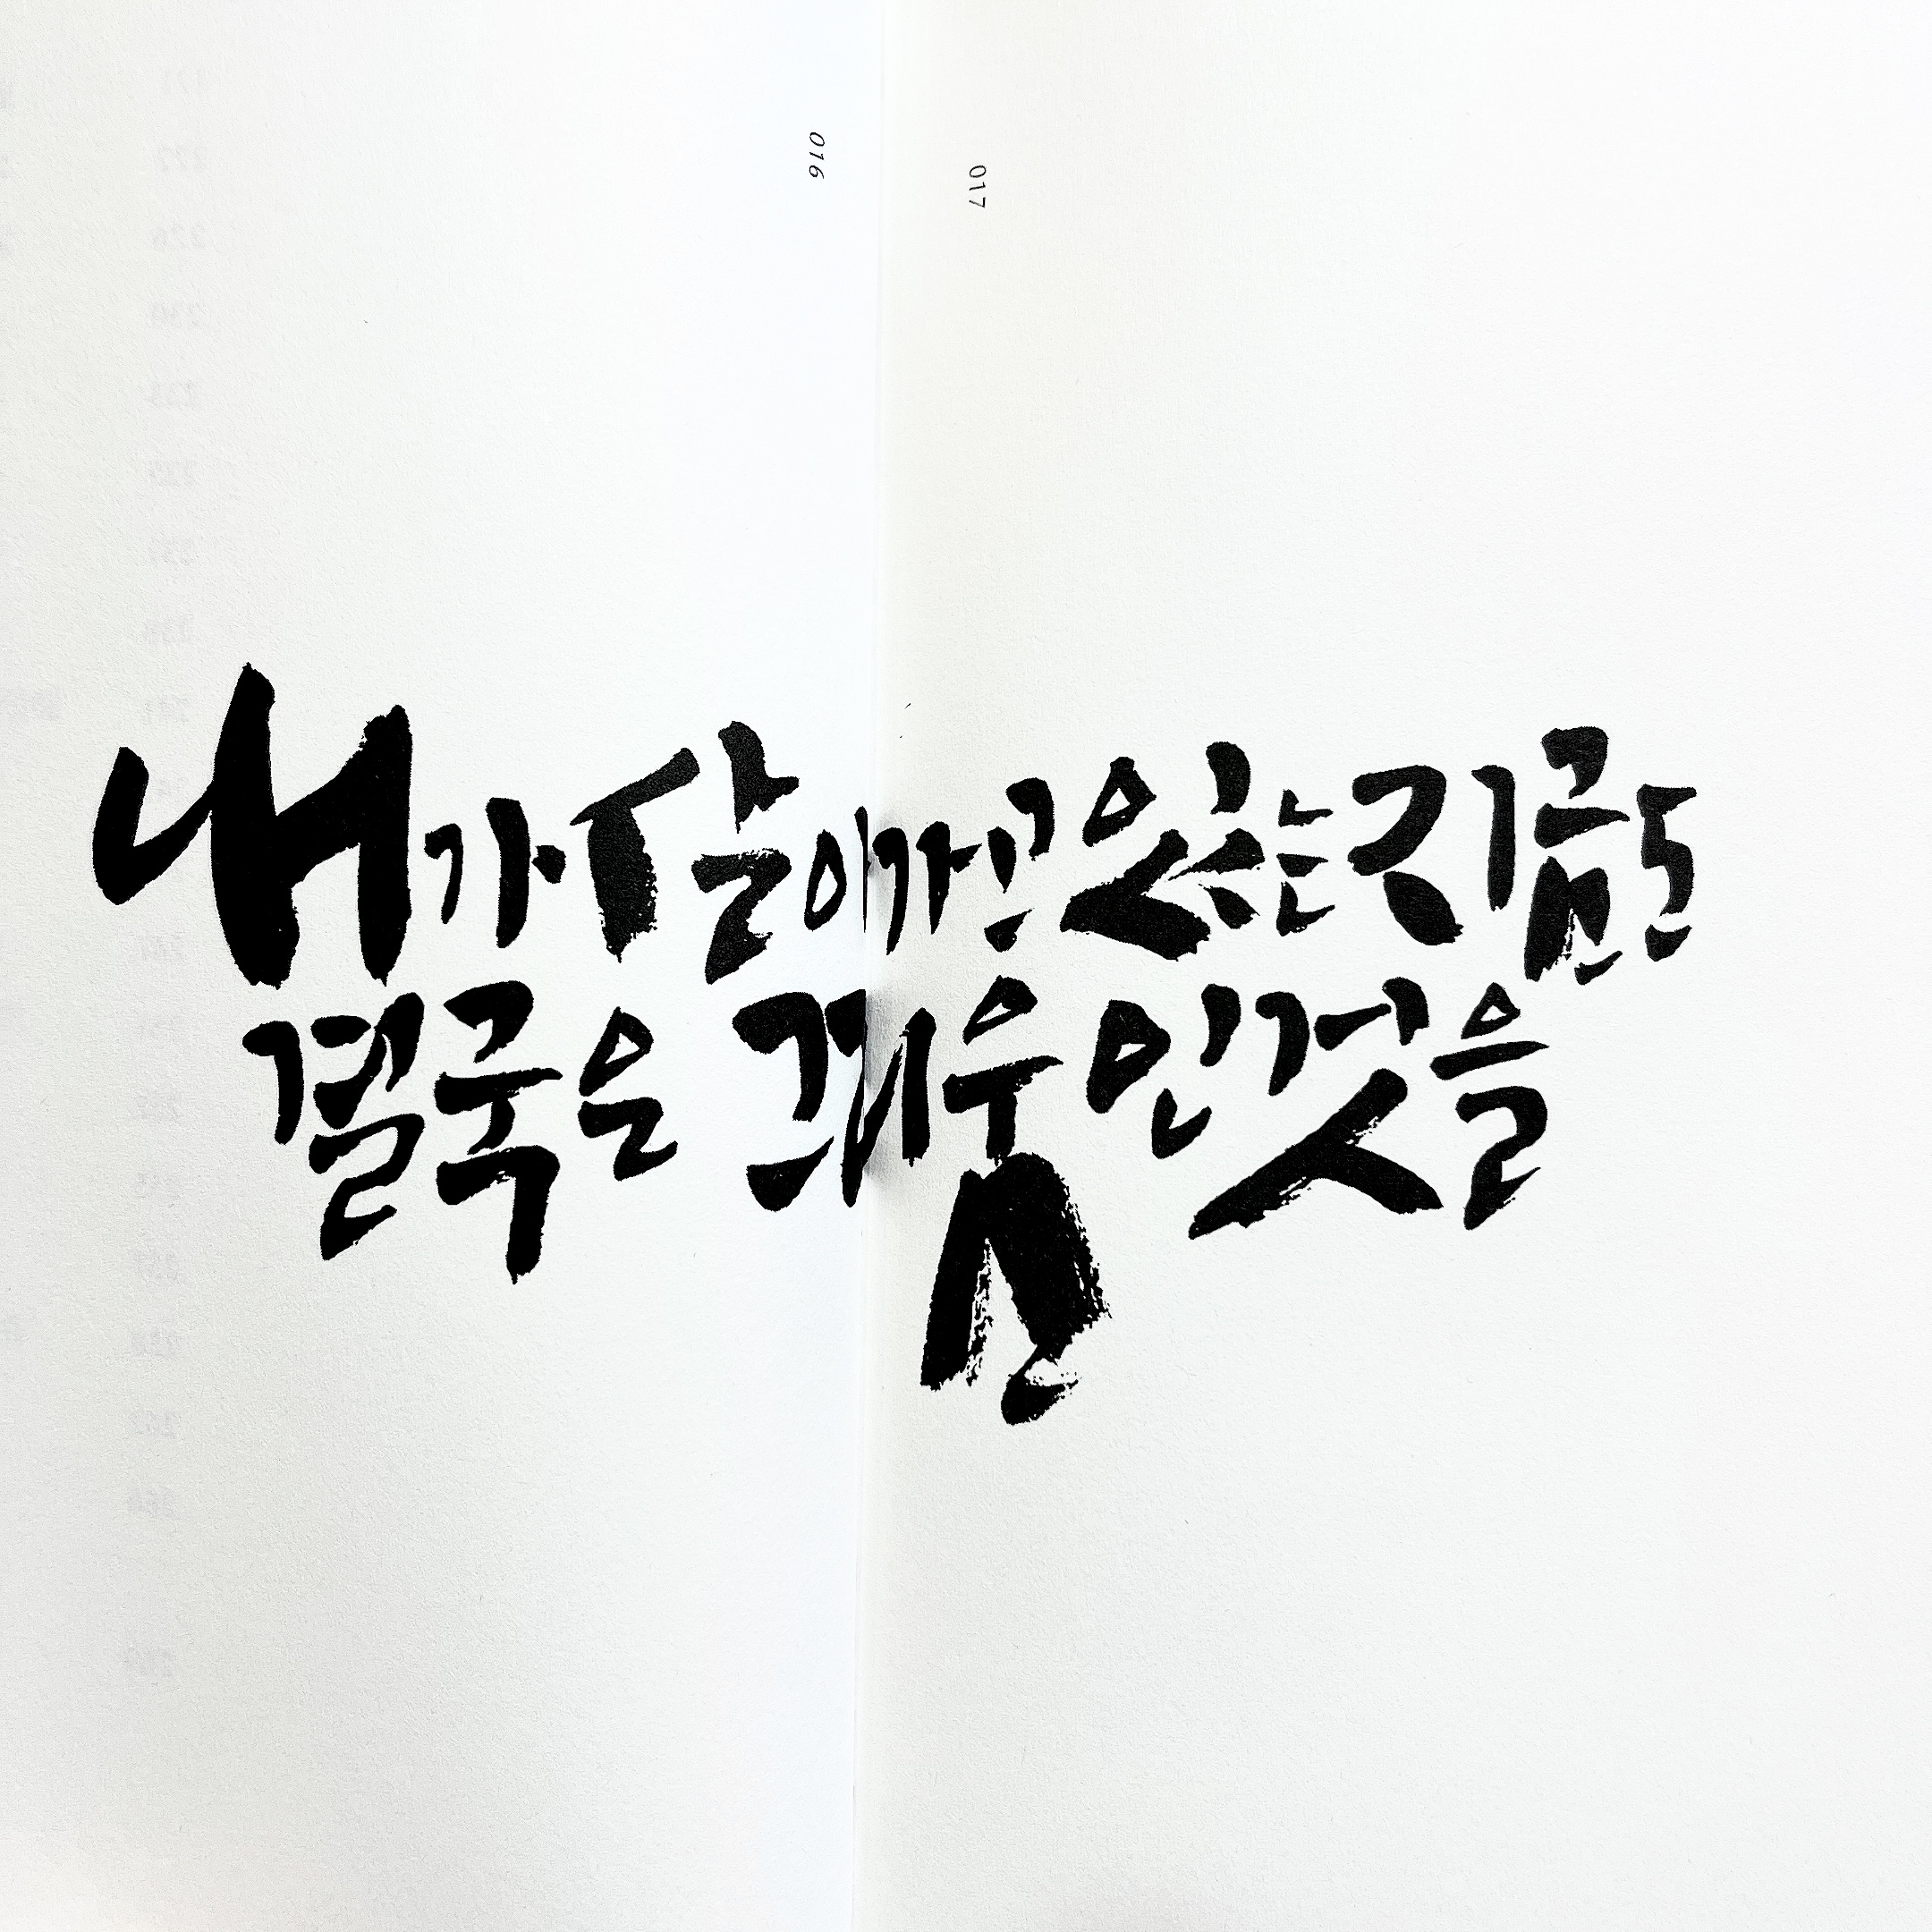 016
017
내가 살아가고 있는 지금도
결국은 그리움인 것을